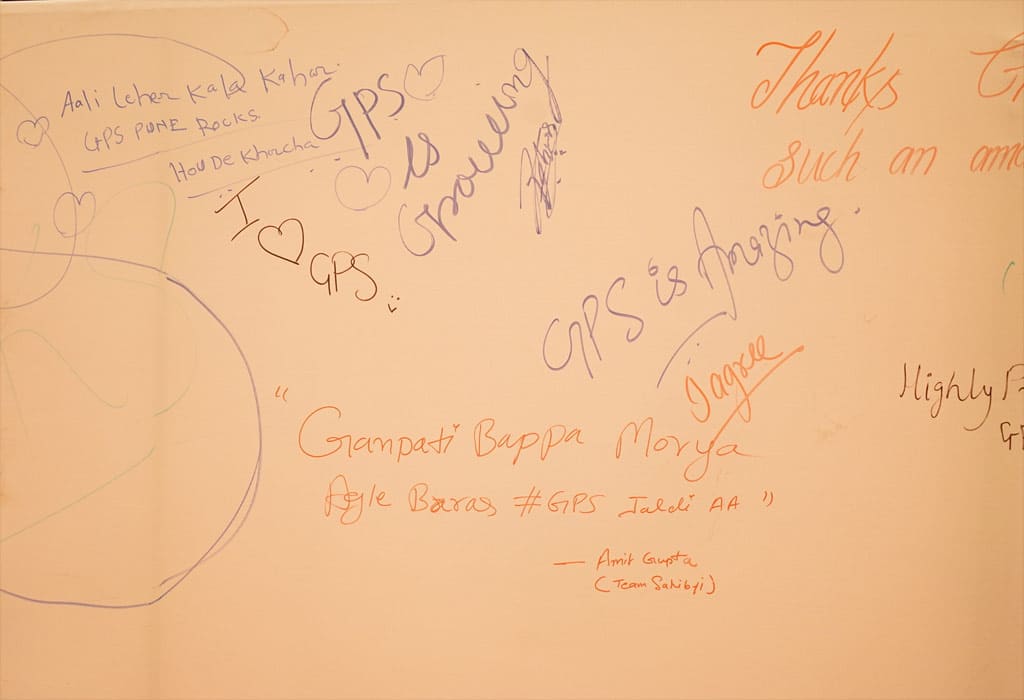 Aali Leher Kala Kahar.
GPS PUNE Rocks.
HOU DE Kharcha
GPS
is
Growing
I ♡ GPS
Thanks
such an
GPS is Amazing.
I agree
Highly
"Ganpati Bappa Morya
Agle Baras #GPS Jaldi AA"
— Amit Gupta
(Team Sahibji)